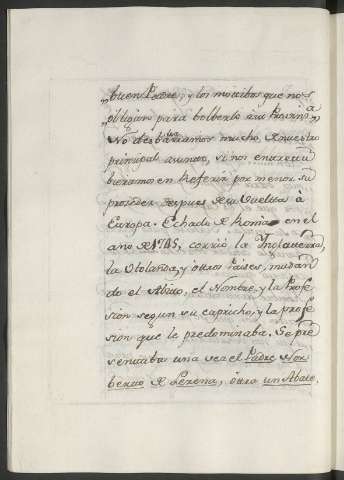 „buen Padre, y los motibos que nos
„obligaron para bolberlo a su Provinª.„
No desbiariamos mucho de nuestro
principal asunto, si nos entretu-
bieramos en referir por menor su
proceder despues de su Vuelta à
Europa. Echado de Roma en el
año de 1745, corrió la Inglaterra,
la Ololanda, y otros Paises, mudan-
do el Abito, el Nombre, y la Profe-
sion segun su capricho, y la profe-
sion que le predominaba. Se pre-
sentaba una vez el Padre Nor-
berto de Lorena, otra un Abate.